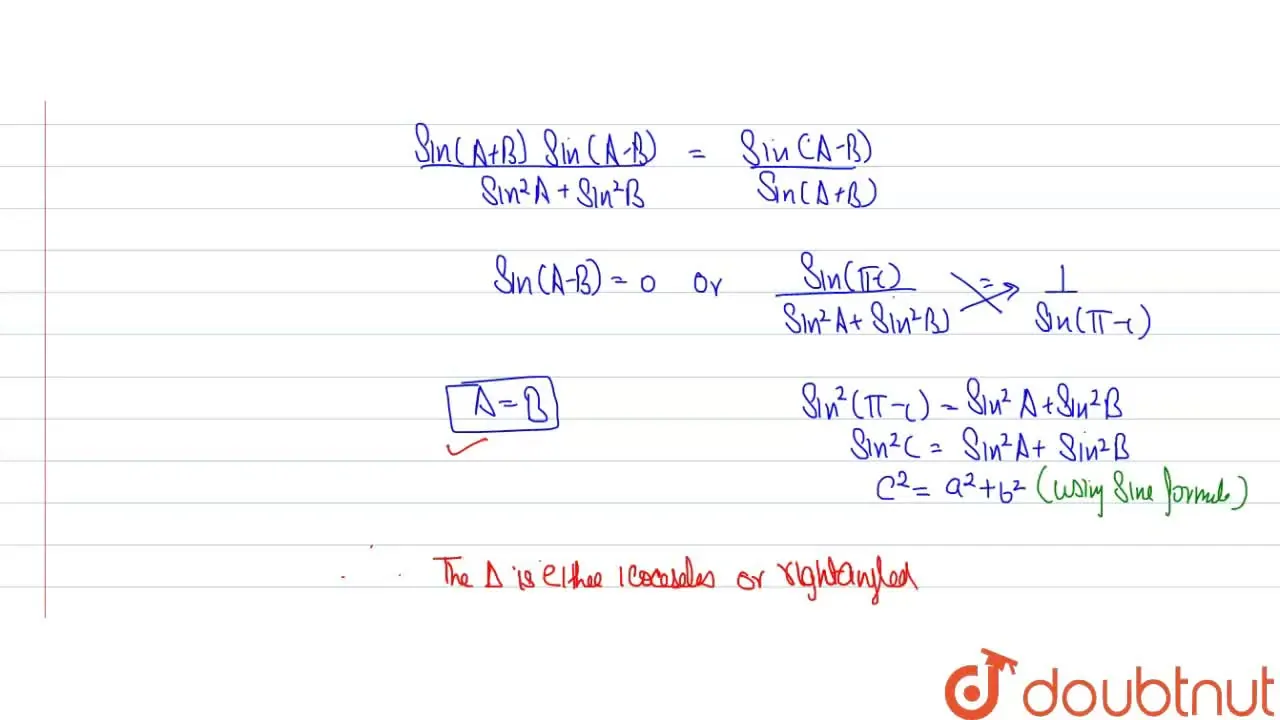 Sin(A+B) Sin(A-B) / Sin²A + Sin²B = Sin(A-B) / Sin(A+B)
Sin(A-B) = 0 Or Sin(π-c) / Sin²A + Sin²B = 1 / Sin(π-c)
A = B
Sin²(π-c) = Sin²A + Sin²B
Sin²C = Sin²A + Sin²B
C² = a² + b² (using Sine formula)
The Δ is or rightangled
doubtnut